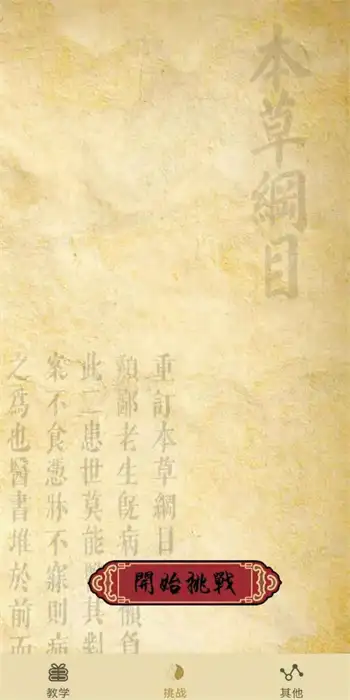 本草綱目
重訂本草綱目
類鄙老生既病 領負
此二患世莫能 其剝
案不食憑牀不寐則病
之為也醫書堆於前而
開始挑戰
教学
挑战
其他